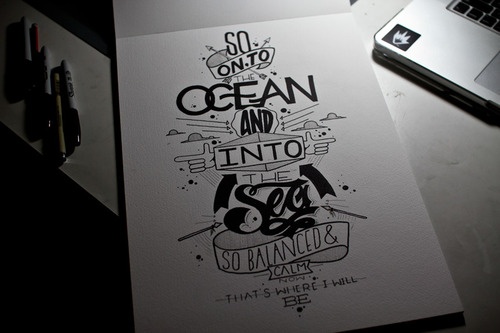 SO
ON.TO
THE
OCEAN
AND
INTO
THE
Sea
SO BALANCED &
CALM
NOW
THAT'S WHERE I WILL
BE